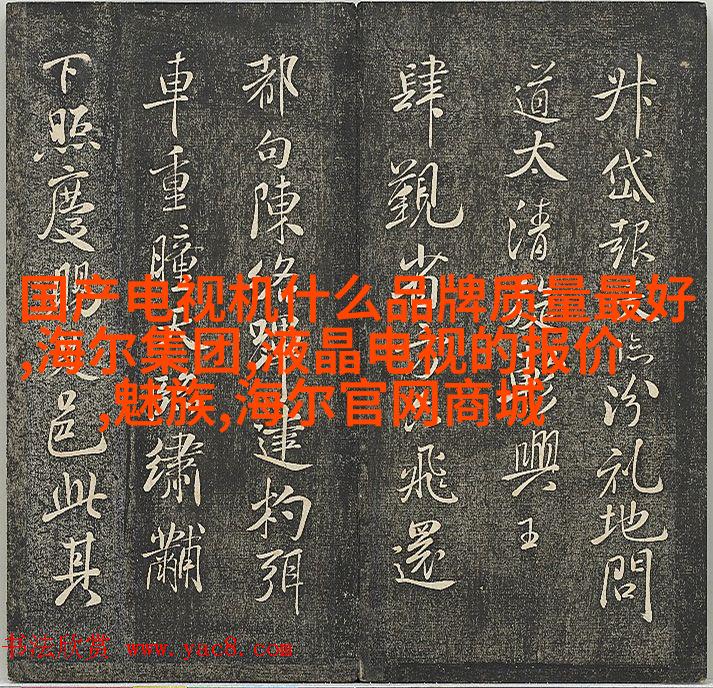 升岱報汾礼地問
道太清興王
肆觀省飛還
都句陳絡蹕建杓弭
車重瞳繡黼
下照慶賜邑此其
国产电视机什么品牌质量最好
,海尔集团,液晶电视的报价
,魅族,海尔官网商城
书法欣赏 www.yac8.com